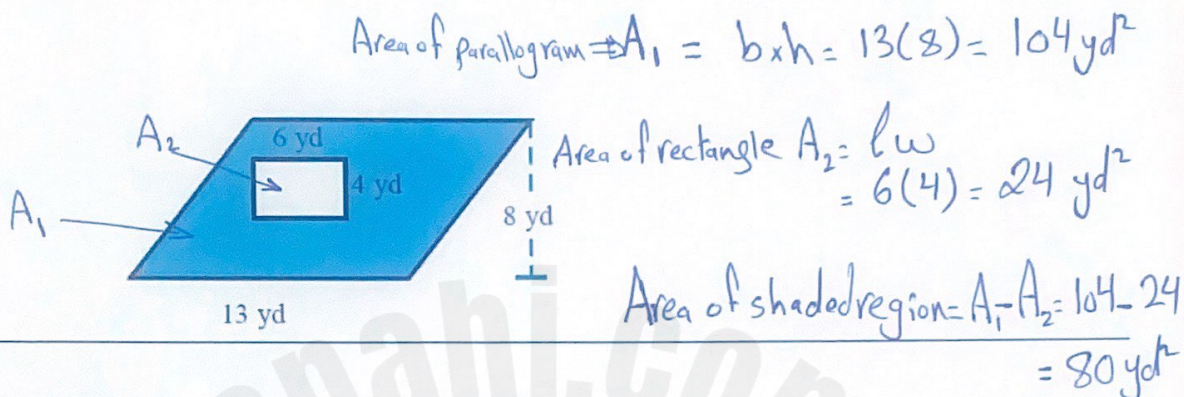 Area of parallogram ⇒ A₁ = b×h = 13(8) = 104 yd²
A₂
6 yd
4 yd
Area of rectangle A₂ = lw
= 6(4) = 24 yd²
A₁
8 yd
13 yd
Area of shaded region = A₁ - A₂ = 104 - 24
= 80 yd²